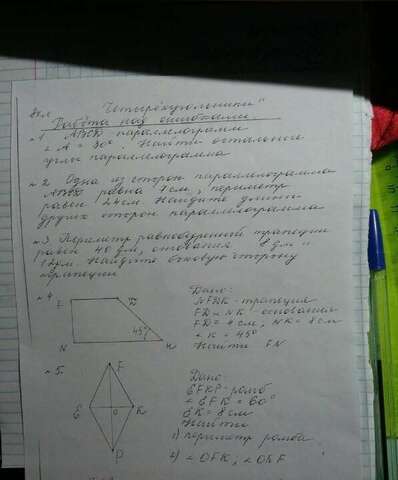 8кл "Четырёхугольники"
Работа над ошибками.
№1 ABCD параллелограмм
∠A = 30°. Найти остальные
углы параллелограмма
№2 Одна из сторон параллелограмма
ABCD равна 7 см, периметр
равен 24 см. Найдите длины
других сторон параллелограмма
№3 Периметр равнобедренной трапеции
равен 40 дм, основания 8 дм и
12 дм. Найдите боковую сторону
трапеции
№4
F D
45°
N K
Дано:
NFDK - трапеция
FD и NK основания
FD = 4 см, NK = 8 см
∠K = 45°
Найти FN
№5.
F
E O K
P
Дано
EFKP - ромб
∠EFK = 60°
EK = 8 см
Найти
1) периметр ромба
2) ∠OFK, ∠OKF